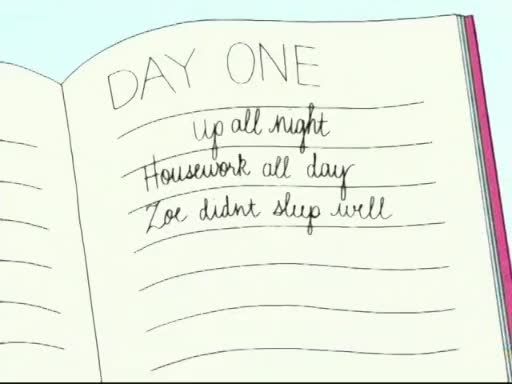 DAY ONE
up all night
Housework all day
Zoe didnt sleep well